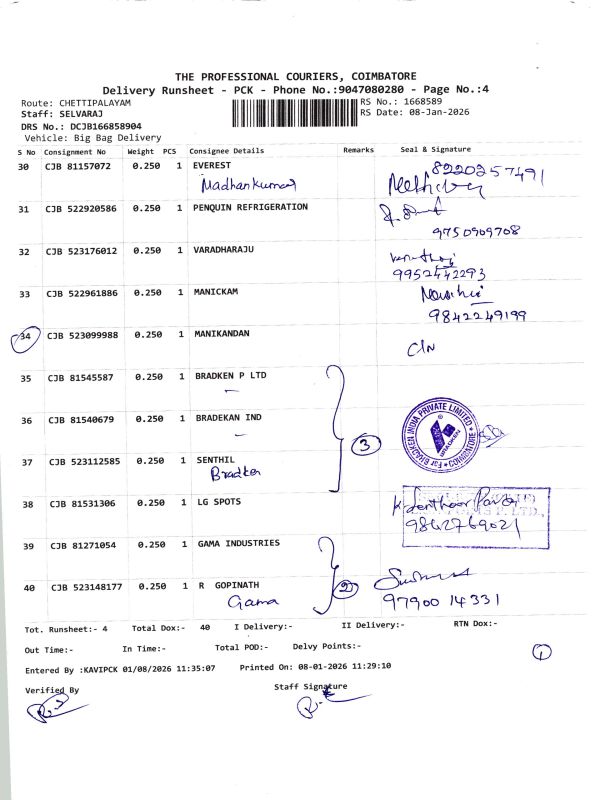 THE PROFESSIONAL COURIERS, COIMBATORE
Delivery Runsheet - PCK - Phone No.:9047080280 - Page No.:4
Route: CHETTIPALAYAM
RS No.: 1668589
Staff: SELVARAJ
RS Date: 08-Jan-2026
DRS No.: DCJB166858904
Vehicle: Big Bag Delivery
S No Consignment No Weight PCS Consignee Details Remarks Seal & Signature
30 CJB 81157072 0.250 1 EVEREST 8220257491
Madhankumar
31 CJB 522920586 0.250 1 PENQUIN REFRIGERATION
9750909708
32 CJB 523176012 0.250 1 VARADHARAJU
9952442293
33 CJB 522961886 0.250 1 MANICKAM
9842249199
34 CJB 523099988 0.250 1 MANIKANDAN
C/N
35 CJB 81545587 0.250 1 BRADKEN P LTD
36 CJB 81540679 0.250 1 BRADEKAN IND
3
For BRADKEN INDIA PRIVATE LIMITED
BRADKEN
COIMBATORE
37 CJB 523112585 0.250 1 SENTHIL
Bradken
38 CJB 81531306 0.250 1 LG SPOTS
9862769021
39 CJB 81271054 0.250 1 GAMA INDUSTRIES
40 CJB 523148177 0.250 1 R GOPINATH
2
Gama
97900 14331
Tot. Runsheet:- 4 Total Dox:- 40 I Delivery:- II Delivery:- RTN Dox:-
Out Time:- In Time:- Total POD:- Delvy Points:-
1
Entered By :KAVIPCK 01/08/2026 11:35:07 Printed On: 08-01-2026 11:29:10
Verified By Staff Signature